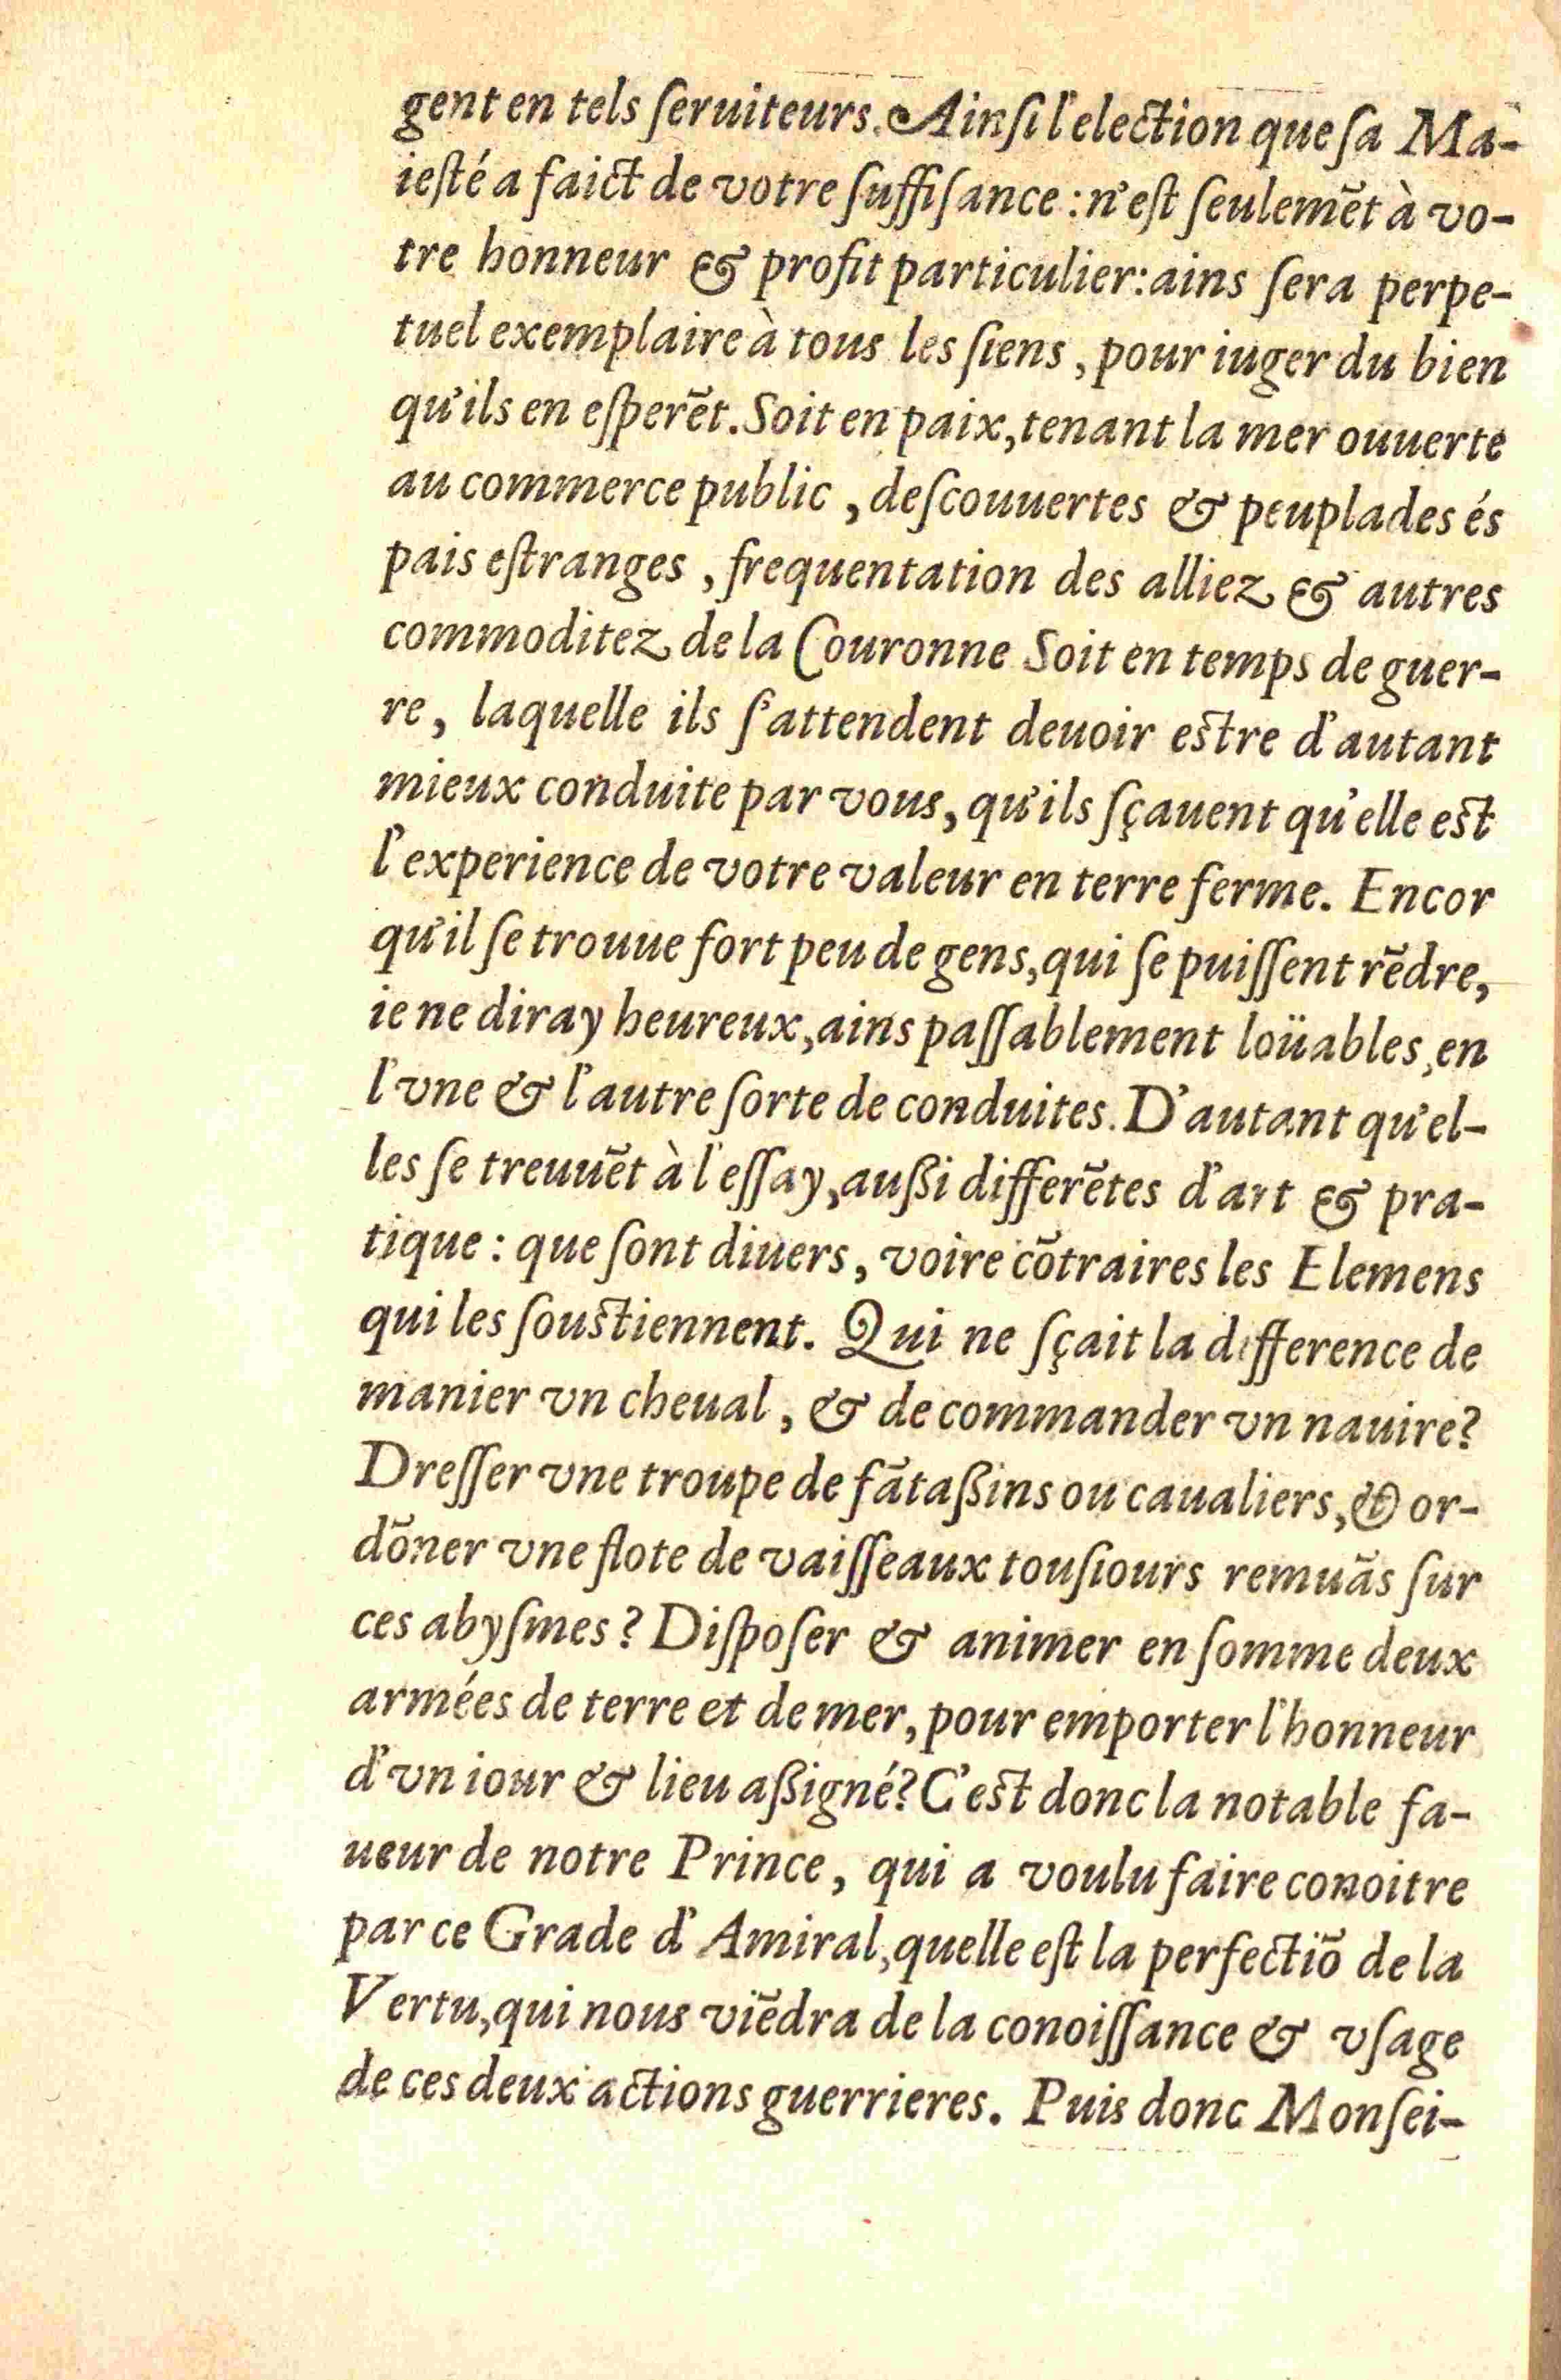 gent en tels ſeruiteurs. Ainſi l'election que ſa Ma-
ieſté a faict de votre ſuffiſance : n'eſt ſeulemēt à vo-
tre honneur & profit particulier: ains ſera perpe-
tuel exemplaire à tous les ſiens, pour iuger du bien
qu'ils en eſperēt. Soit en paix, tenant la mer ouuerte
au commerce public, deſcouuertes & peuplades és
pais eſtranges, frequentation des alliez & autres
commoditez de la Couronne Soit en temps de guer-
re, laquelle ils ſ'attendent deuoir eſtre d'autant
mieux conduite par vous, qu'ils ſçauent qu'elle eſt
l'experience de votre valeur en terre ferme. Encor
qu'il ſe trouue fort peu de gens, qui ſe puiſſent rēdre,
ie ne diray heureux, ains paſſablement loüables, en
l'vne & l'autre ſorte de conduites. D'autant qu'el-
les ſe treuuēt à l'eſſay, außi differētes d'art & pra-
tique : que ſont diuers, voire cōtraires les Elemens
qui les ſouſtiennent. Qui ne ſçait la difference de
manier vn cheual, & de commander vn nauire?
Dreſſer vne troupe de fātaßins ou caualiers, & or-
dōner vne flote de vaiſſeaux touſiours remuās ſur
ces abyſmes? Diſpoſer & animer en ſomme deux
armées de terre et de mer, pour emporter l'honneur
d'vn iour & lieu aßigné? C'eſt donc la notable fa-
ueur de notre Prince, qui a voulu faire conoitre
par ce Grade d'Amiral, quelle eſt la perfectiō de la
Vertu, qui nous viēdra de la conoiſſance & vſage
de ces deux actions guerrieres. Puis donc Monſei-